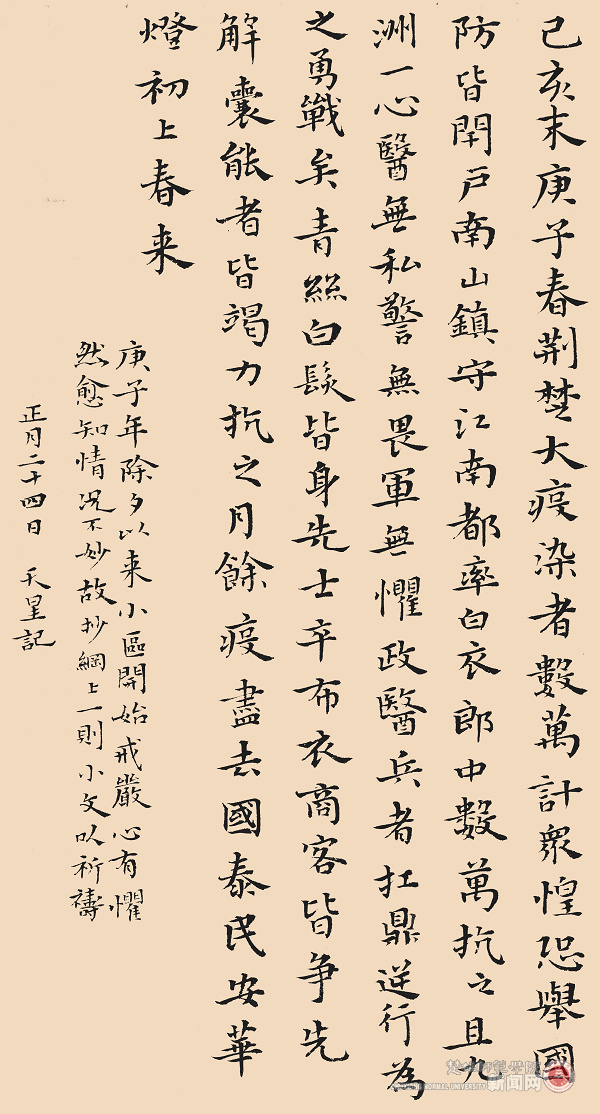 己亥末庚子春荆楚大疫染者數萬計衆惶恐舉國
防皆閉戸南山鎮守江南都率白衣郎中數萬抗之且九
洲一心醫無私警無畏軍無懼政醫兵者扛鼎逆行為
之勇戰矣青絲白髮皆身先士卒布衣商客皆争先
解囊能者皆竭力抗之月餘疫盡去國泰民安華
燈初上春来
庚子年除夕以来小區開始戒嚴心有懼
然愈知情况不妙故抄網上一則小文以祈禱
正月二十四日 天星記
楚雄師範學院
新闻网